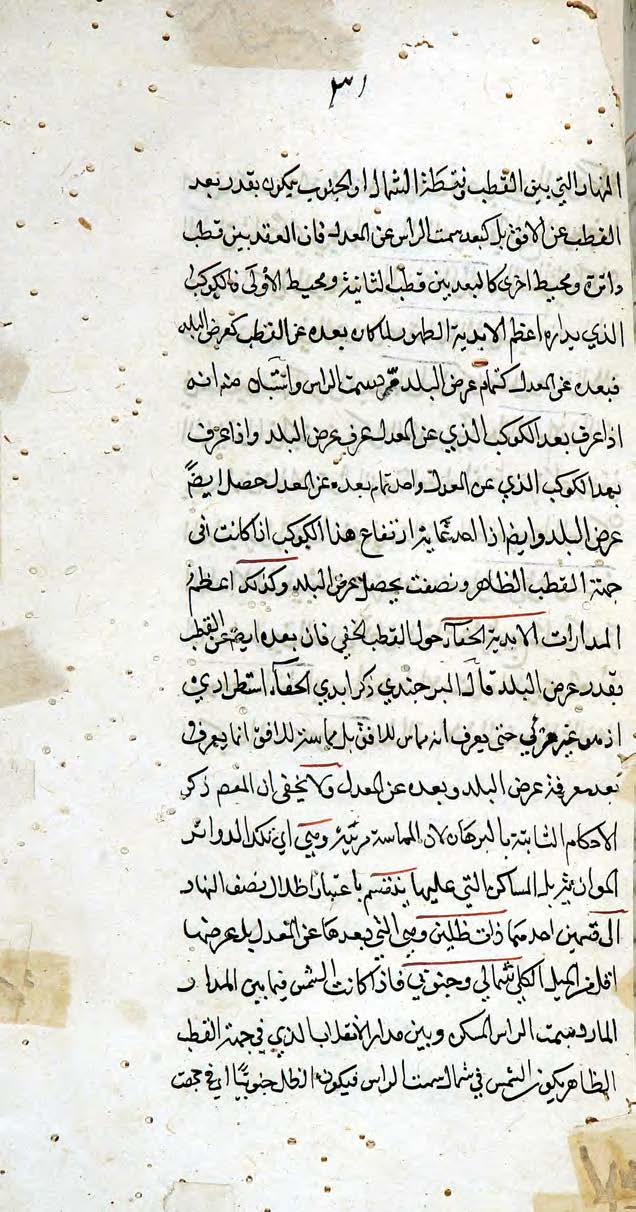 ٣١
النهار التي بين القطب ونقطة الشمال او الجنوب يكون بقدر بعد
القطب عن الافق بل كبعد سمت الراس عن المعدل فان البعد بين قطب
دائرة ومحيط اخرى كالبعد بين قطب الثانية ومحيط الأولى فالكوكب
الذي مداره اعظم الابدية الظهور لما كان بعده عن القطب كعرض البلد
فبعده عن المعدل كتمام عرض البلد سمت الراس منه انه
اذا عرف بعد الكوكب الذي عن المعدل عرف عرض البلد واذا عرف
بعد الكوكب الذي عن المعدل واخذ تمام بعده عن المعدل حصل ايضاً
عرض البلد وايضا اذا اخذ غاية ارتفاع هذا الكوكب اذا كانت في
جهة القطب الظاهر ونصفت يحصل عرض البلد وكذلك اعظم
المدارات الابدية الخفاء حول القطب الخفي فان بعده ايضا عن القطب
بقدر عرض البلد قال البرجندي ذكر ابدي الخفاء استطرادي
اذ هو غير مرئي حتى يعرف انه مماس للافق بل مماسة للافق انما يعرف
بعد معرفة عرض البلد وبعده عن المعدل ولا يخفى ان المصم ذكر
الاحكام الثابتة بالبرهان لان المماسة مرئية وهي اي تلك الدوائر
الموازية بل المساكن التي عليها ينقسم باعتبار اظلال نصف النهار
الى قسمين احدهما ذات ظلين وهي التي بعدها عن المعدل بل عرضها
اقل من الميل الكلي شمالي وجنوبي فاذا كانت الشمس فيما بين المدار
المار بسمت الراس المسكن وبين مدار الانقلاب الذي في جهة القطب
الظاهر يكون الشمس في شمال سمت الراس فيكون الظل جنوبيًا اي في جهت